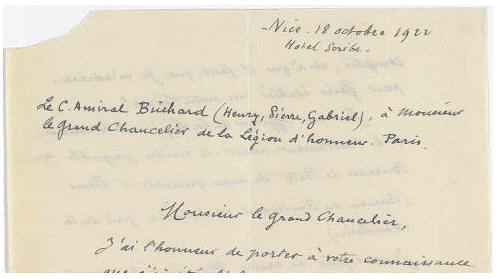 Nice. 18 octobre 1922
Hotel Scribe.
Le C. Amiral Buchard (Henry, Pierre, Gabriel), à Monsieur
le grand Chancelier de la Légion d'honneur. Paris.
Monsieur le grand Chancelier,
J'ai l'honneur de porter à votre connaissance
que